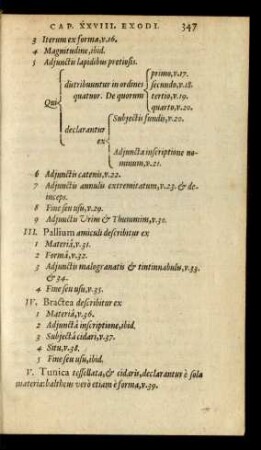 CAP. XXVIII. EXODI. 347
3 Iterum ex forma, v.16.
4 Magnitudine, ibid.
5 Adjunctis lapidibus pretiosis.
Qui
distribuuntur in ordines quatuor. De quorum
primo, v.17.
secundo, v.18.
tertio, v.19.
quarto, v.20.
declarantur ex
Subjectis fundis, v.20.
Adjuncta inscriptione no-
minum, v.21.
6 Adjunctis catenis, v.22.
7 Adjunctis annulis extremitatum, v.23. & de-
inceps.
8 Fine seu usu, v.29.
9 Adjunctis Urim & Thummim, v.30.
III. Pallium amiculi describitur ex
1 Materiâ, v.31.
2 Formâ, v.32.
3 Adjunctis malogranatis & tintinnabulis, v.33.
& 34.
4 Fine seu usu, v.35.
IV. Bractea describitur ex
1 Materiâ, v.36.
2 Adjunctâ inscriptione, ibid.
3 Subjectâ cidari, v.37.
4 Situ, v.38.
5 Fine seu usu, ibid.
V. Tunica tessellata, & cidaris, declarantur è sola
materia: baltheus verò etiam è forma, v.39.